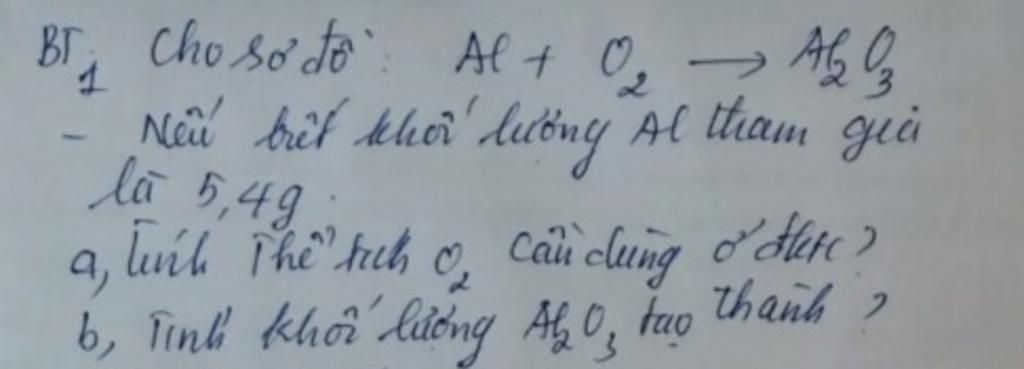 BT1 Cho sơ đồ: Al + O2 → Al2O3
- Nếu biết khối lượng Al tham gia
là 5,4g.
a, Tính Thể tích O2 cần dùng ở đktc?
b, Tính khối lượng Al2O3 tạo thành?